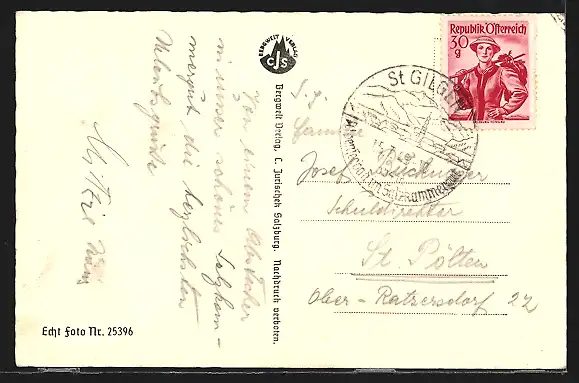 Von einem Abstecher
in unser schönes Salzkam-
mergut die herzlichsten
Urlaubsgrüße
BERGWELT VERLAG
CJS
Bergwelt Verlag, C. Jurischek Salzburg. Nachdruck verboten.
Echt Foto Nr. 25396
Republik Österreich
30
g
St GILGEN
im Salzkammergut
S. g.
Familie
Josef
Schuldirektor
St. Pölten
Ober-Ratzersdorf 22